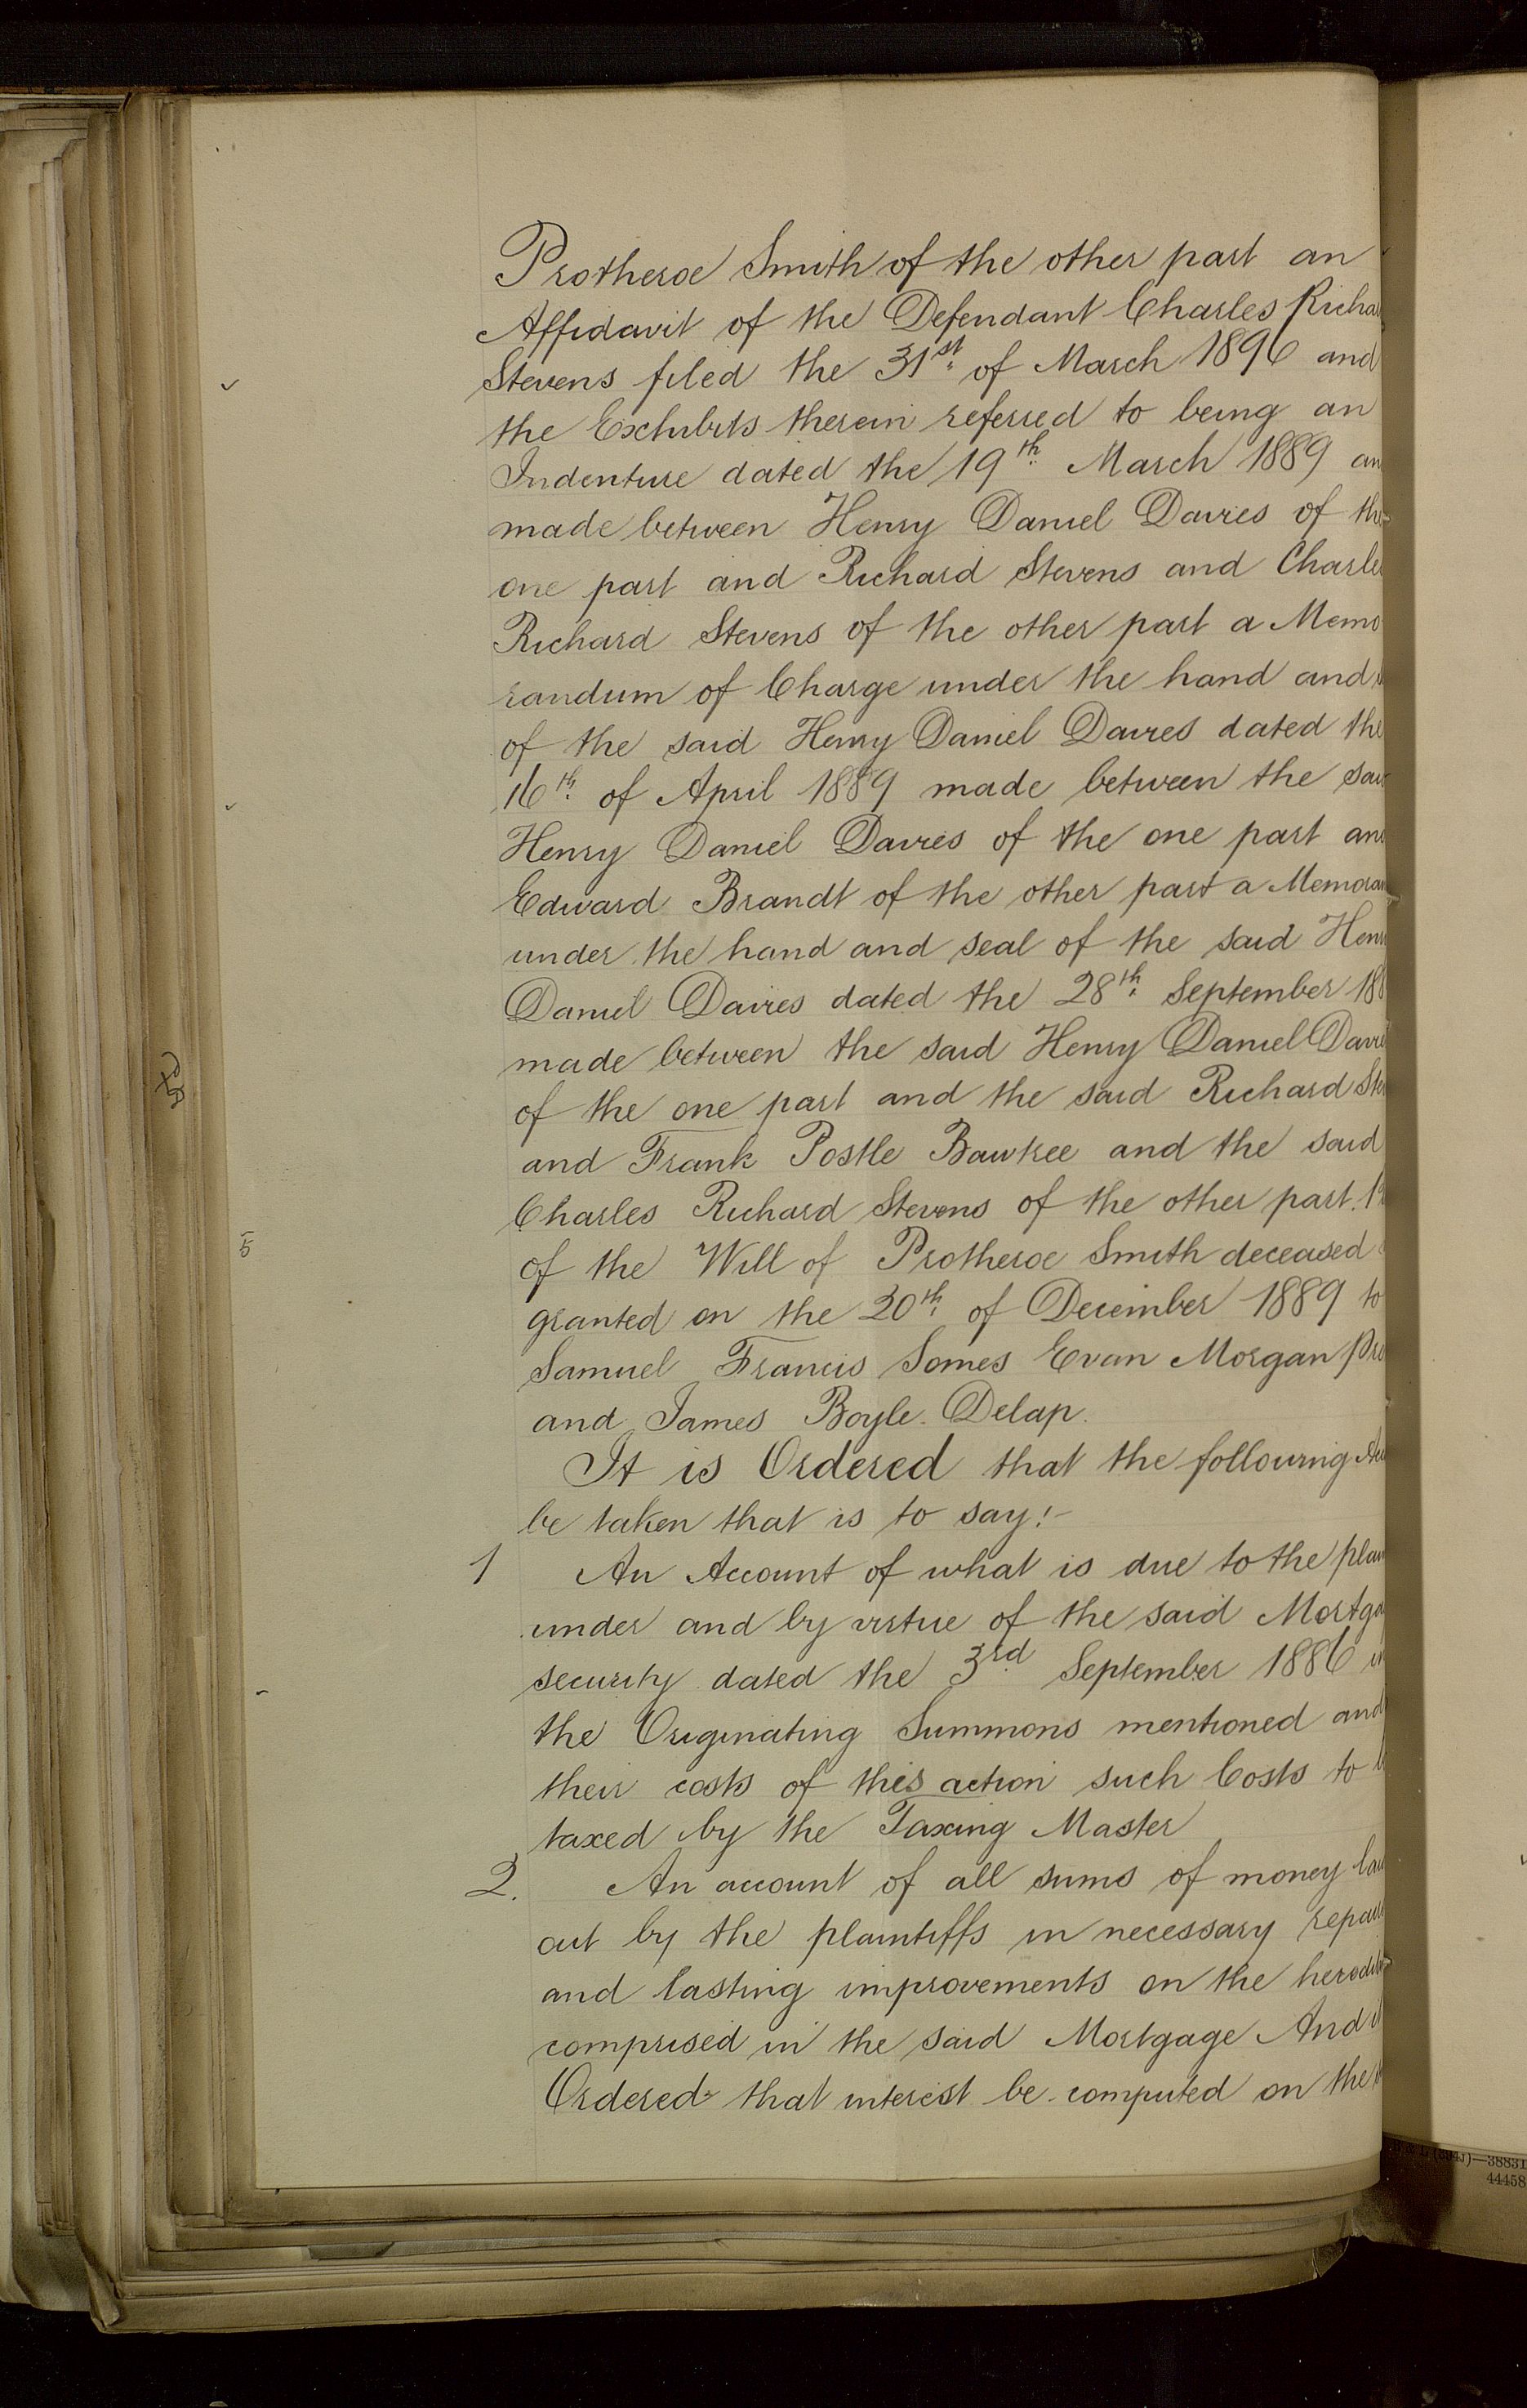 Protheroe Smith of the other part an
Affidavit of the Defendant Charles Richa
Stevens filed the 31st. of March 1896 and
the Exhibits therein referred to being an
Indenture dated the 19th. March 1889 an
made between Henry Daniel Davies of the
one part and Richard Stevens and Charles
Richard Stevens of the other part a Memo
randum of Charge under the hand and
of the said Henry Daniel Davies dated the
16th. of April 1889 made between the said
Henry Daniel Davies of the one part and
Edward Brandt of the other part a Memoran
under the hand and seal of the said Henr
Daniel Davies dated the 28th. September 188
made between the said Henry Daniel Davie
of the one part and the said Richard Ste
and Frank Postle Bawtree and the said
Charles Richard Stevens of the other part
of the Will of Protheroe Smith deceased
granted on the 20th. of December 1889 to
Samuel Francis Somes Evan Morgan Pro
and James Boyle Delap.
It is Ordered that the following Acc
be taken that is to say:-
1 An Account of what is due to the plain
under and by virtue of the said Mortga
security dated the 3rd. September 1886 in
the Originating Summons mentioned and
their costs of this action such Costs to b
taxed by the Taxing Master
2. An account of all sums of money lai
out by the plaintiffs in necessary repair
and lasting improvements on the heredit
comprised in the said Mortgage And it
Ordered that interest be computed on the
5
38831
44458